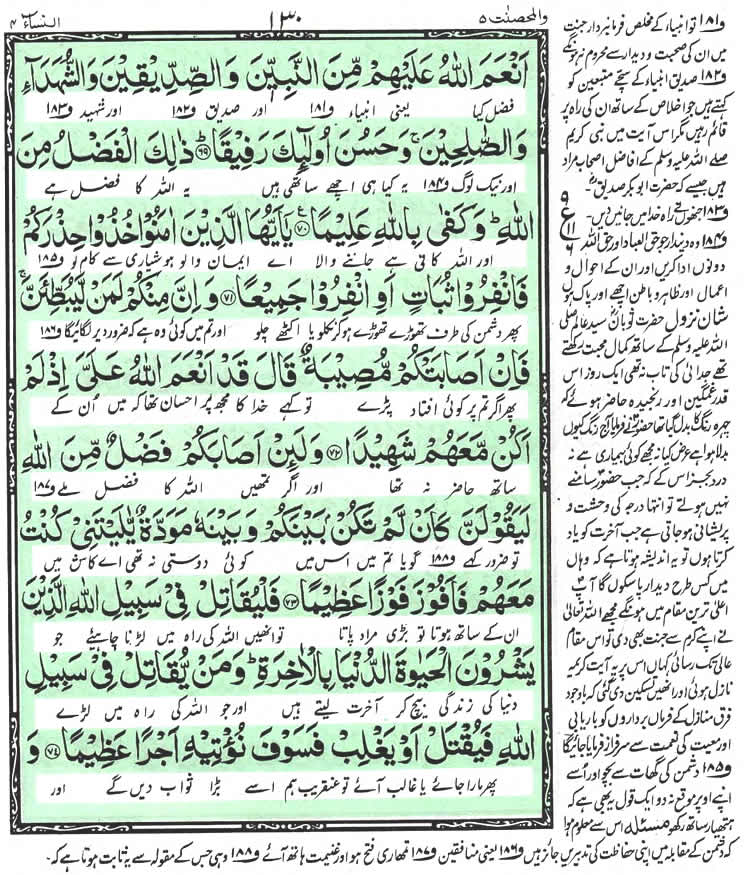 والمحصنت ۵
۱۳۰
النساء ۴
اَنْعَمَ اللّٰهُ عَلَیْهِمْ مِّنَ النَّبِیّٖنَ وَالصِّدِّیْقِیْنَ وَالشُّهَدَآءِ
فضل کیا یعنی انبیاء و۱۸۱ اور صدیق و۱۸۲ اور شہید و۱۸۳
وَالصّٰلِحِیْنَ ۚ وَحَسُنَ اُولٰٓىِٕكَ رَفِیْقًا ﴿۶۹﴾ ذٰلِكَ الْفَضْلُ مِنَ
اور نیک لوگ و۱۸۴ یہ کیا ہی اچھے ساتھی ہیں یہ اللہ کا فضل ہے
اللّٰهِ ؕ وَكَفٰی بِاللّٰهِ عَلِیْمًا ﴿۷۰﴾ یٰۤاَیُّهَا الَّذِیْنَ اٰمَنُوْا خُذُوْا حِذْرَكُمْ
اور اللہ کافی ہے جاننے والا اے ایمان والو ہوشیاری سے کام لو و۱۸۵
فَانْفِرُوْا ثُبَاتٍ اَوِ انْفِرُوْا جَمِیْعًا ﴿۷۱﴾ وَاِنَّ مِنْكُمْ لَمَنْ لَّیُبَطِّئَنَّ ۚ
پھر دشمن کی طرف تھوڑے تھوڑے ہو کر نکلو یا اکٹھے چلو اور تم میں کوئی وہ ہے کہ ضرور دیر لگائیگا و۱۸۶
فَاِنْ اَصَابَتْكُمْ مُّصِیْبَةٌ قَالَ قَدْ اَنْعَمَ اللّٰهُ عَلَیَّ اِذْ لَمْ
پھر اگر تم پر کوئی افتاد پڑے تو کہے خدا کا مجھ پر احسان تھا کہ میں اُن کے
اَكُنْ مَّعَهُمْ شَهِیْدًا ﴿۷۲﴾ وَلَىِٕنْ اَصَابَكُمْ فَضْلٌ مِّنَ اللّٰهِ
ساتھ حاضر نہ تھا اور اگر تمھیں اللہ کا فضل ملے و۱۸۷
لَیَقُوْلَنَّ كَاَنْ لَّمْ تَكُنْۢ بَیْنَكُمْ وَبَیْنَهٗ مَوَدَّةٌ یّٰلَیْتَنِیْ كُنْتُ
تو ضرور کہے و۱۸۸ گویا تم میں اس میں کوئی دوستی نہ تھی اے کاش میں
مَعَهُمْ فَاَفُوْزَ فَوْزًا عَظِیْمًا ﴿۷۳﴾ فَلْیُقَاتِلْ فِیْ سَبِیْلِ اللّٰهِ الَّذِیْنَ
ان کے ساتھ ہوتا تو بڑی مراد پاتا تو انھیں اللہ کی راہ میں لڑنا چاہیئے جو
یَشْرُوْنَ الْحَیٰوةَ الدُّنْیَا بِالْاٰخِرَةِ ؕ وَمَنْ یُّقَاتِلْ فِیْ سَبِیْلِ
دنیا کی زندگی بیچ کر آخرت لیتے ہیں اور جو اللہ کی راہ میں لڑے
اللّٰهِ فَیُقْتَلْ اَوْ یَغْلِبْ فَسَوْفَ نُؤْتِیْهِ اَجْرًا عَظِیْمًا ﴿۷۴﴾ وَ
پھر مارا جائے یا غالب آئے تو عنقریب ہم اسے بڑا ثواب دیں گے اور
و۱۸۱ تو انبیاء کے مخلص فرمانبردار جنت
میں ان کی صحبت و دیدار سے محروم نہ ہونگے
و۱۸۲ صدیق انبیاء کے سچے متبعین کو
کہتے ہیں جو اخلاص کے ساتھ ان کی راہ پر
قائم رہیں مگر اس آیت میں نبی کریم
صلے اللہ علیہ وسلم کے افاضل اصحاب مراد
ہیں جیسے کہ حضرت ابوبکر صدیق
و۱۸۳ جنھوں نے راہ خدا میں جانیں دیں۔
و۱۸۴ وہ دیندار جو حق العباد اور حق اللہ
دونوں ادا کریں اور ان کے احوال و
اعمال اور ظاہر و باطن اچھے اور پاک ہوں
شان نزول حضرت ثوبان سید عالم صلی
اللہ علیہ وسلم کے ساتھ کمال محبت رکھتے
تھے جدائی کی تاب نہ تھی ایک روز اس
قدر غمگین اور رنجیدہ حاضر ہوئے کہ
چہرہ کا رنگ بدل گیا تھا حضور نے فرمایا آج رنگ کیوں
بدلا ہوا ہے عرض کیا نہ مجھے کوئی بیماری ہے نہ
درد بجز اس کے کہ جب حضور سامنے
نہیں ہوتے تو انتہا درجہ کی وحشت و
پریشانی ہو جاتی ہے جب آخرت کو یاد
کرتا ہوں تو یہ اندیشہ ہوتا ہے کہ وہاں
میں کس طرح دیدار پا سکوں گا آپ
اعلیٰ ترین مقام میں ہونگے مجھے اللہ تعالیٰ
نے اپنے کرم سے جنت بھی دی تو اس مقام
عالی تک رسائی کہاں اس پر یہ آیت کریمہ
نازل ہوئی اور انھیں تسکین دی گئی کہ باوجود
فرق منازل کے فرماں برداروں کو باریابی
اور معیت کی نعمت سے سرفراز فرمایا جائیگا
و۱۸۵ دشمن کی گھات سے بچو اور اسے
اپنے اوپر موقع نہ دو ایک قول یہ بھی ہے کہ
ہتھیار ساتھ رکھو مسئلہ اس سے معلوم ہوا
کہ دشمن کے مقابلہ میں اپنی حفاظت کی تدبیریں جائز ہیں و۱۸۶ یعنی منافقین و۱۸۷ تمھاری فتح ہو اور غنیمت ہاتھ آئے و۱۸۸ وہی جس کے مقولہ سے یہ ثابت ہوتا ہے کہ۔
۹
ع
۱۱
۶